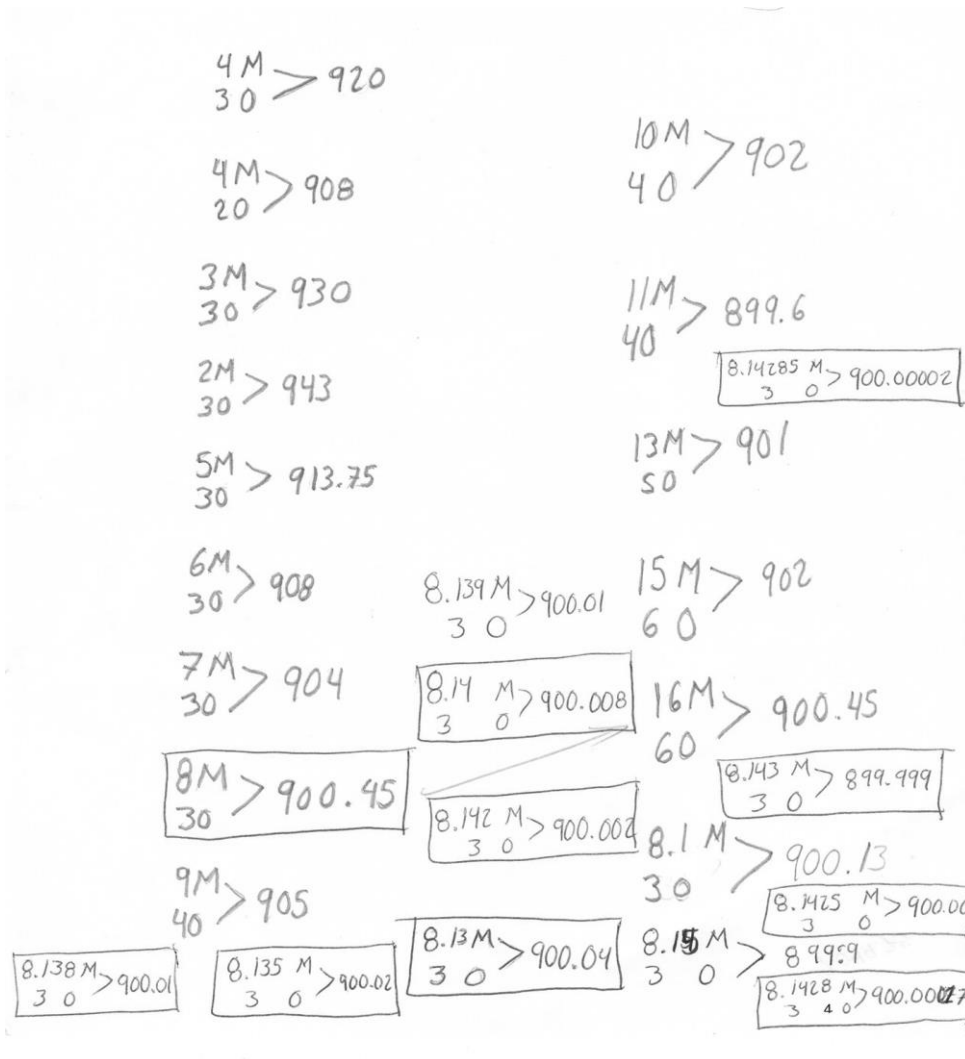 4M
30 > 920
4M
20 > 908
3M
30 > 930
2M
30 > 943
5M
30 > 913.75
6M
30 > 908
7M
30 > 904
8M
30 > 900.45
9M
40 > 905
8.138 M
3 0 > 900.01
8.135 M
3 0 > 900.02
8.139 M
3 0 > 900.01
8.14 M
3 0 > 900.008
8.142 M
3 0 > 900.002
8.13 M
3 0 > 900.04
10M
40 > 902
11M
40 > 899.6
8.14285 M
3 0 > 900.00002
13M
50 > 901
15M
60 > 902
16M
60 > 900.45
8.143 M
3 0 > 899.999
8.1 M
30 > 900.13
8.1425 M
3 0 > 900.00
8.15 M
3 0 > 899.9
8.1428 M
3 0 >